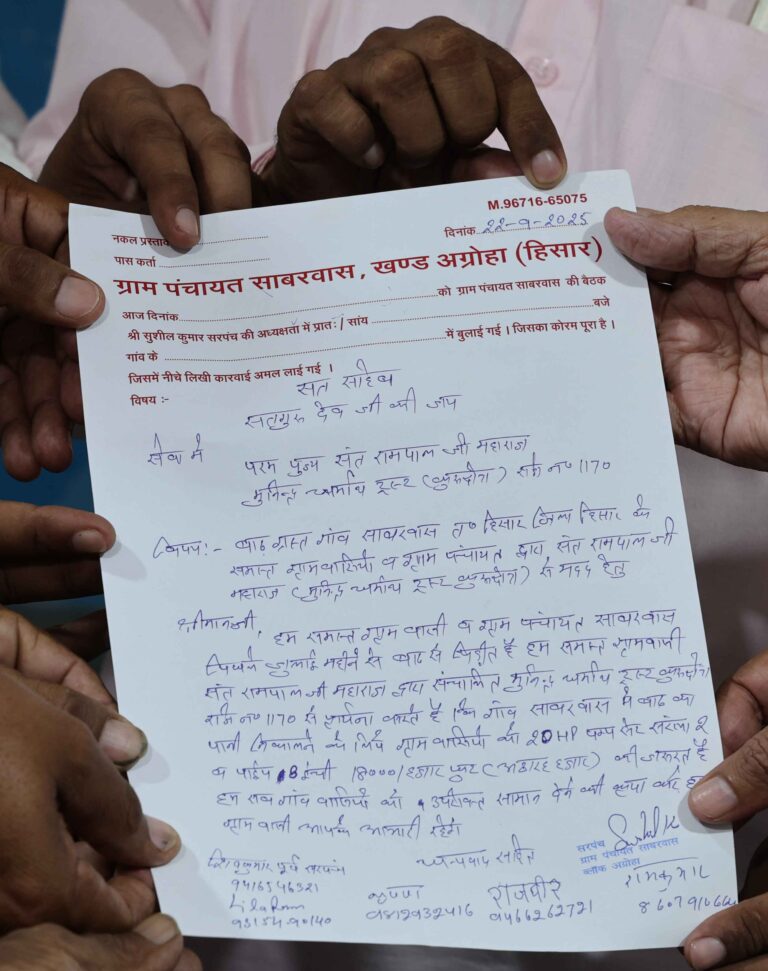 M.96716-65075
नकल प्रस्ताव
दिनांक 22-9-2025
पास कर्ता
ग्राम पंचायत साबरवास, खण्ड अग्रोहा (हिसार)
आज दिनांक को ग्राम पंचायत साबरवास की बैठक
श्री सुशील कुमार सरपंच की अध्यक्षता में प्रातः/सांय बजे
गांव के में बुलाई गई । जिसका कोरम पूरा है ।
जिसमें नीचे लिखी कारवाई अमल लाई गई ।
विषय :-
सत साहेब
सतगुरु देव जी की जय
सेवा में
परम पूज्य संत रामपाल जी महाराज
मुनिन्द्र धर्मार्थ ट्रस्ट (कुरुक्षेत्र) रजि न० 1170
विषय :- बाढ ग्रस्त गांव साबरवास त० हिसार जिला हिसार के
समस्त ग्रामवासियो व ग्राम पंचायत द्वारा, संत रामपाल जी
महाराज (मुनिन्द्र धर्मार्थ ट्रस्ट कुरुक्षेत्र) से मदद हेतु
श्रीमानजी,
हम समस्त ग्राम वासी व ग्राम पंचायत साबरवास
पिछले जुलाई महीने से बाढ से पिड़ीत है हम समस्त ग्रामवासी
संत रामपाल जी महाराज द्वारा संचालित मुनिन्द्र धर्मार्थ ट्रस्ट कुरुक्षेत्र
रजि न० 1170 से प्रार्थना करते है कि गांव साबरवास मे बाढ का
पानी निकालने के लिये ग्राम वासियो को 20HP पम्प सेट 2
व पाईप 8 ईन्ची 18000/ हजार फुट (अठारह हजार) की जरूरत है
हम सब गांव वासियो को उपरोक्त सामान देने की कृपा करे हम
ग्राम वासी आपके आभारी रहेंगे
धन्यवाद सहित
सरपंच
ग्राम पंचायत साबरवास
ब्लॉक अग्रोहा
शिवकुमार पूर्व सरपंच
9416546321
Lila Ram
कृष्ण
9812932416
राजवीर
9466262721
रामकुमार